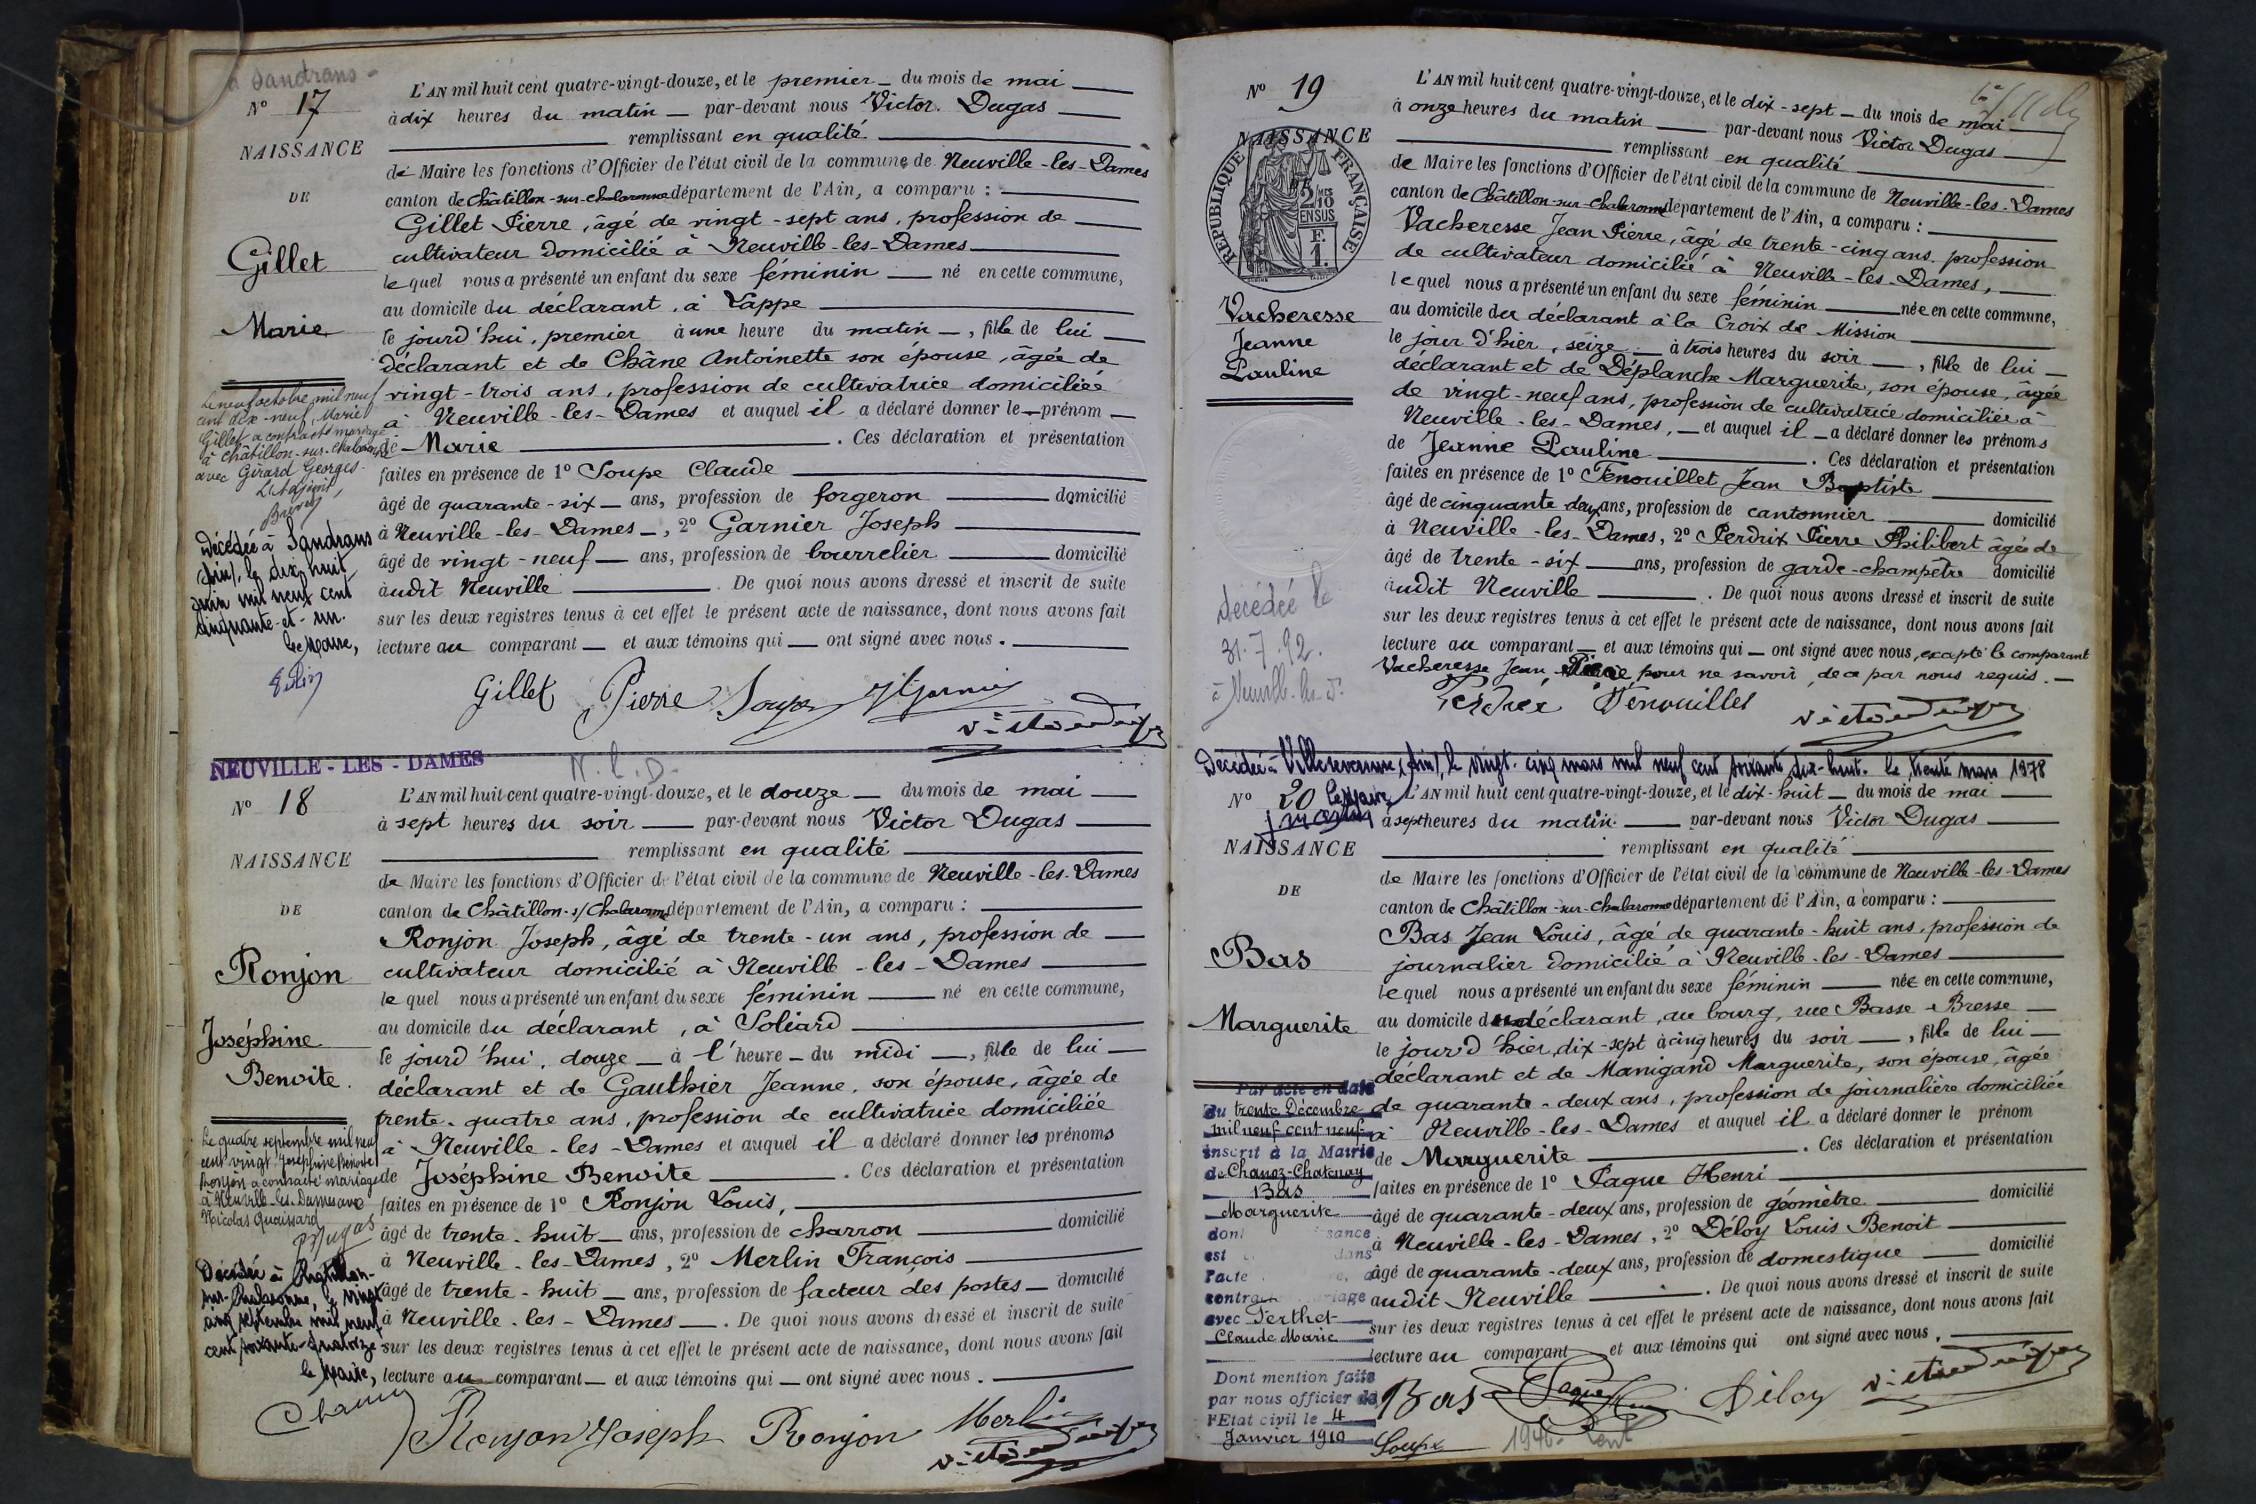 à Sandrans
N° 17
NAISSANCE
DE
Gillet
Marie
Le neuf octobre mil neuf
cent dix-neuf, Marie
Gillet a contracté mariage
à Châtillon-sur-Chalaronne
avec Girard Georges.
L'Adjoint,
Décédée à Sandrans
(Ain), le dix huit
juin mil neuf cent
cinquante-et-un.
le Maire,
L'AN mil huit cent quatre-vingt-douze, et le premier du mois de mai
à dix heures du matin par-devant nous Victor Dugas
remplissant en qualité
de Maire les fonctions d'Officier de l'état civil de la commune de Neuville-les-Dames
canton de Châtillon-sur-Chalaronne département de l'Ain, a comparu :
Gillet Pierre, âgé de vingt-sept ans, profession de
cultivateur domicilié à Neuville-les-Dames
lequel nous a présenté un enfant du sexe féminin né en cette commune,
au domicile du déclarant, à Lappe
le jourd'hui, premier à une heure du matin, fille de lui
déclarant et de Châne Antoinette son épouse, âgée de
vingt-trois ans, profession de cultivatrice domiciliée
à Neuville-les-Dames et auquel il a déclaré donner le prénom
de Marie. Ces déclaration et présentation
faites en présence de 1° Soupe Claude
âgé de quarante-six ans, profession de forgeron domicilié
à Neuville-les-Dames, 2° Garnier Joseph
âgé de vingt-neuf ans, profession de bourrelier domicilié
audit Neuville. De quoi nous avons dressé et inscrit de suite
sur les deux registres tenus à cet effet le présent acte de naissance, dont nous avons fait
lecture au comparant et aux témoins qui ont signé avec nous.
Gillet Pierre Soupe J Garnier
Victor Dugas
NEUVILLE - LES - DAMES
N. l. D.
N° 18
NAISSANCE
DE
Ronjon
Joséphine
Benoite.
Le quatre septembre mil neuf
cent vingt Joséphine Benoite
Ronjon a contracté mariage
à Neuville-les-Dames avec
Nicolas Quaissard
Dugas
Décédée à Chatillon-
sur-Chalaronne, le vingt
cinq septembre mil neuf
cent soixante-quatorze
le Maire,
L'AN mil huit cent quatre-vingt-douze, et le douze du mois de mai
à sept heures du soir par-devant nous Victor Dugas
remplissant en qualité
de Maire les fonctions d'Officier de l'état civil de la commune de Neuville-les-Dames
canton de Châtillon-s/Chalaronne département de l'Ain, a comparu :
Ronjon Joseph, âgé de trente-un ans, profession de
cultivateur domicilié à Neuville-les-Dames
lequel nous a présenté un enfant du sexe féminin né en cette commune,
au domicile du déclarant, à Soliard
le jourd'hui, douze à l'heure du midi, fille de lui
déclarant et de Gauthier Jeanne, son épouse, âgée de
trente-quatre ans, profession de cultivatrice domiciliée
à Neuville-les-Dames et auquel il a déclaré donner les prénoms
de Joséphine Benoite. Ces déclaration et présentation
faites en présence de 1° Ronjon Louis,
âgé de trente-huit ans, profession de charron domicilié
à Neuville-les-Dames, 2° Merlin François
âgé de trente-huit ans, profession de facteur des postes domicilié
à Neuville-les-Dames. De quoi nous avons dressé et inscrit de suite
sur les deux registres tenus à cet effet le présent acte de naissance, dont nous avons fait
lecture au comparant et aux témoins qui ont signé avec nous.
Ronjon Joseph Ronjon Merlin
Victor Dugas
N° 19
NAISSANCE
RÉPUBLIQUE FRANÇAISE
2/10
EN SUS
F.
1.
Vacheresse
Jeanne
Pauline
Décédée le
31.7.92.
à Neuville-les-D.
L'AN mil huit cent quatre-vingt-douze, et le dix-sept du mois de mai
à onze heures du matin par-devant nous Victor Dugas
remplissant en qualité
de Maire les fonctions d'Officier de l'état civil de la commune de Neuville-les-Dames
canton de Châtillon-sur-Chalaronne département de l'Ain, a comparu :
Vacheresse Jean Pierre, âgé de trente-cinq ans, profession
de cultivateur domicilié à Neuville-les-Dames,
lequel nous a présenté un enfant du sexe féminin née en cette commune,
au domicile du déclarant à la Croix de Mission
le jour d'hier, seize à trois heures du soir, fille de lui
déclarant et de Déplanche Marguerite, son épouse, âgée
de vingt-neuf ans, profession de cultivatrice domiciliée à
Neuville-les-Dames, et auquel il a déclaré donner les prénoms
de Jeanne Pauline. Ces déclaration et présentation
faites en présence de 1° Fenouillet Jean Baptiste
âgé de cinquante deux ans, profession de cantonnier domicilié
à Neuville-les-Dames, 2° Perdrix Pierre Philibert âgée de
âgé de trente-six ans, profession de garde-champêtre domicilié
audit Neuville. De quoi nous avons dressé et inscrit de suite
sur les deux registres tenus à cet effet le présent acte de naissance, dont nous avons fait
lecture au comparant et aux témoins qui ont signé avec nous, excepté le comparant
Vacheresse Jean Pierre pour ne savoir, de ce par nous requis.
Perdrix Fenouillet
Victor Dugas
Décédée à Villereversure, (Ain), le vingt-cinq mars mil neuf cent soixante dix-huit. le trente mars 1978
le Maire
N° 20
NAISSANCE
DE
Bas
Marguerite
Par acte en date
du trente Décembre
mil neuf cent neuf
inscrit à la Mairie
de Chanoz-Chatenay
Bas
Marguerite
dont sance
est dans
l'acte
contract riage
avec Perthet
Claude Marie
Dont mention faite
par nous officier de
l'Etat civil le 4
Janvier 1910
L'AN mil huit cent quatre-vingt-douze, et le dix-huit du mois de mai
à sept heures du matin par-devant nous Victor Dugas
remplissant en qualité
de Maire les fonctions d'Officier de l'état civil de la commune de Neuville-les-Dames
canton de Châtillon-sur-Chalaronne département de l'Ain, a comparu :
Bas Jean Louis, âgé de quarante-huit ans, profession de
journalier domicilié à Neuville-les-Dames
lequel nous a présenté un enfant du sexe féminin née en cette commune,
au domicile du déclarant, au bourg, rue Basse-Bresse
le jour d'hier, dix-sept à cinq heures du soir, fille de lui
déclarant et de Manigand Marguerite, son épouse, âgée
de quarante-deux ans, profession de journalière domiciliée
à Neuville-les-Dames et auquel il a déclaré donner le prénom
de Marguerite. Ces déclaration et présentation
faites en présence de 1° Paque Henri
âgé de quarante-deux ans, profession de géomètre domicilié
à Neuville-les-Dames, 2° Déloy Louis Benoit
âgé de quarante-deux ans, profession de domestique domicilié
audit Neuville. De quoi nous avons dressé et inscrit de suite
sur les deux registres tenus à cet effet le présent acte de naissance, dont nous avons fait
lecture au comparant et aux témoins qui ont signé avec nous.
Bas Paque Déloy Victor Dugas
Soupe